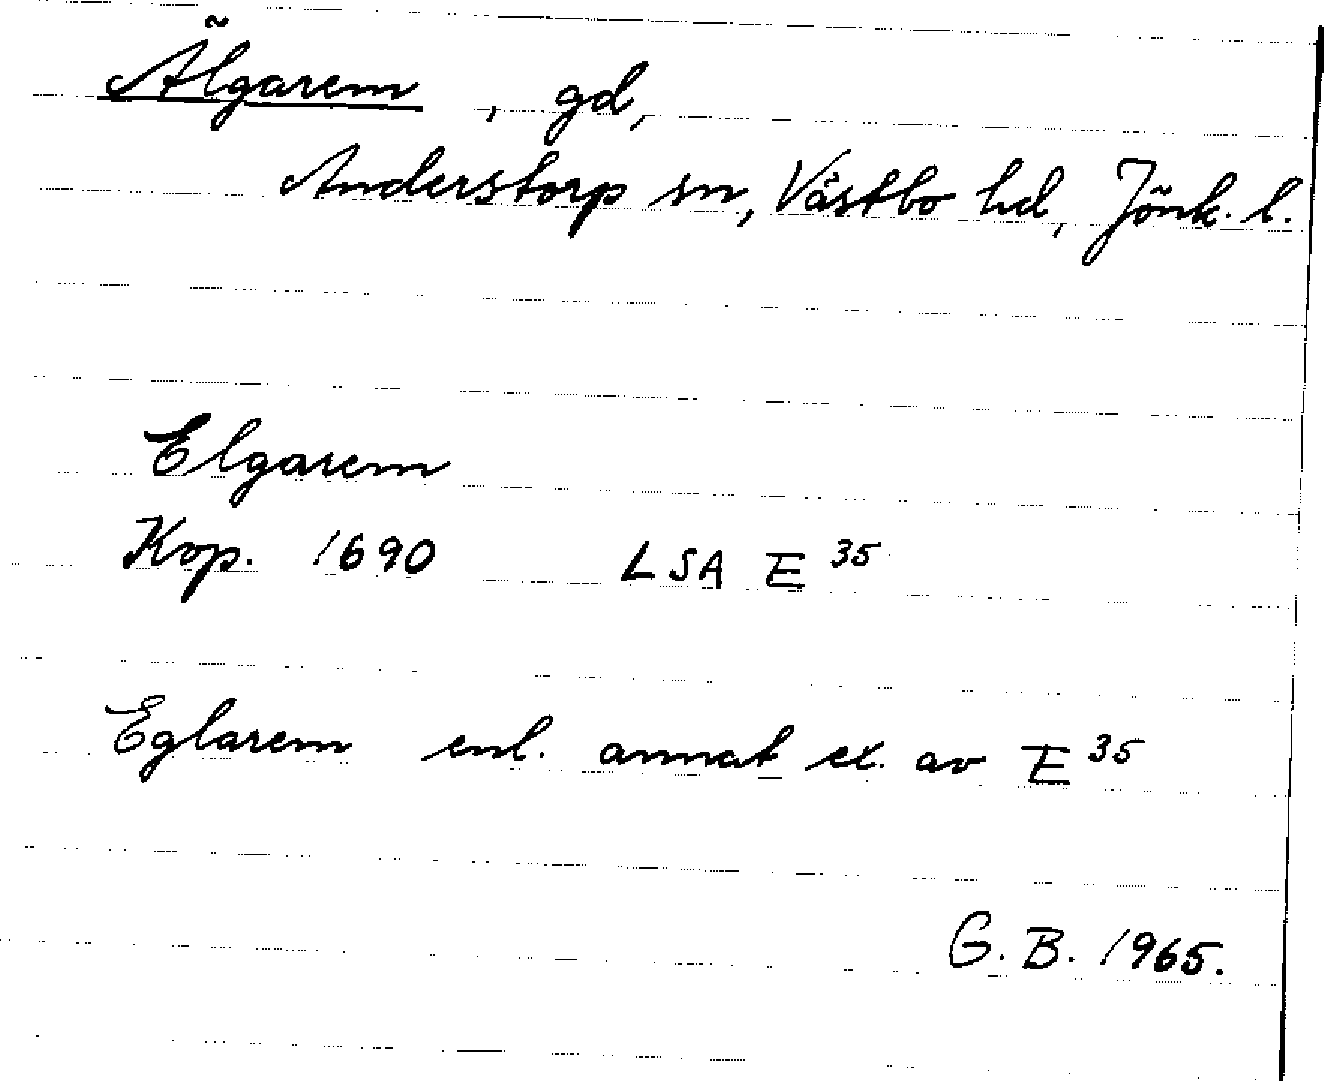 Älgarem , gd,
Anderstorp sn, Västbo hd, Jönk. l.
Elgarem
Kop. 1690 LSA E 35
Eglarem enl. annat ex. av E 35
G. B. 1965.